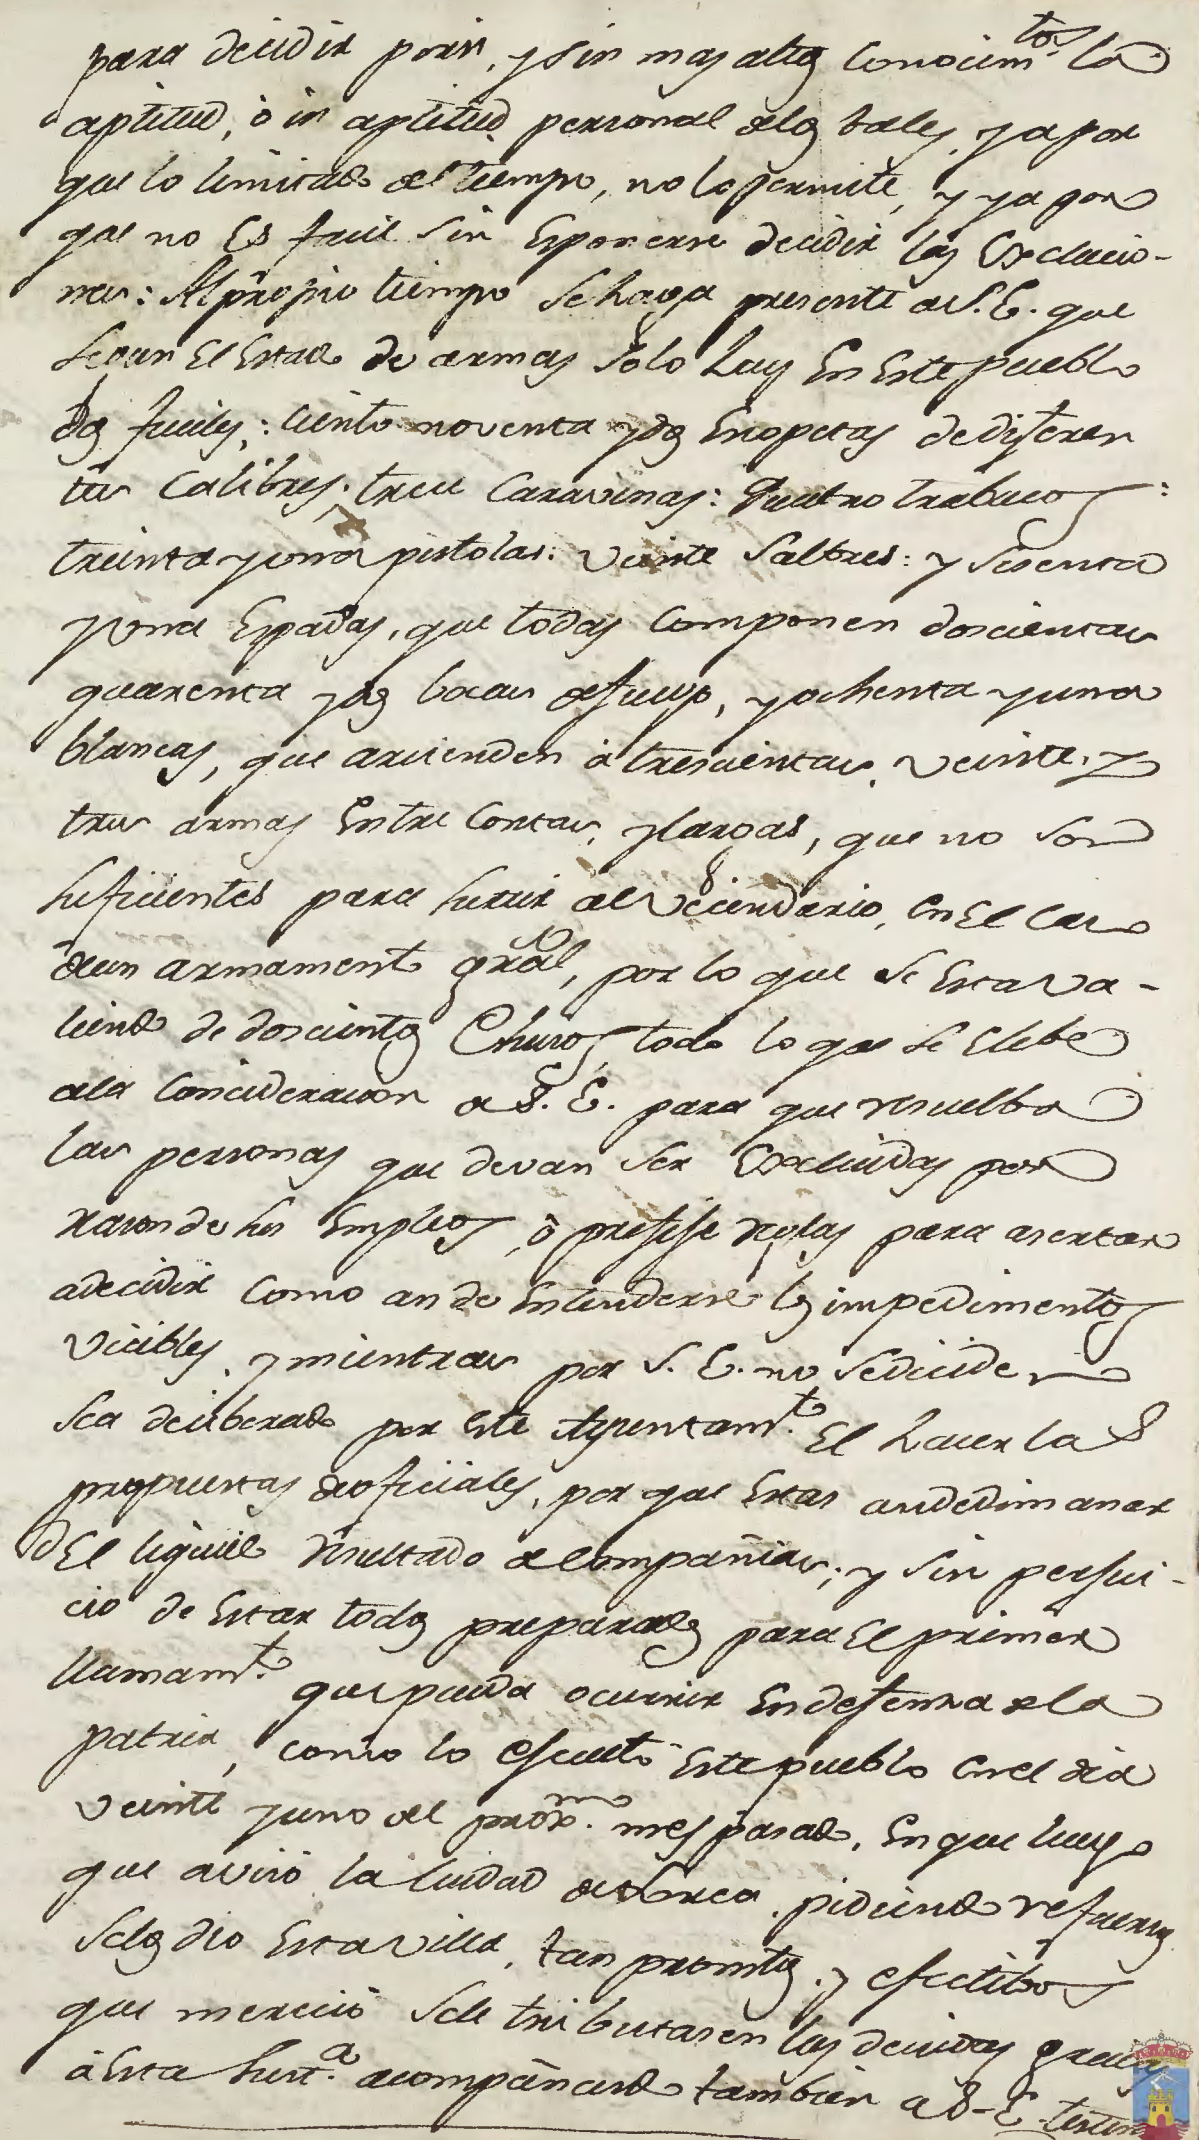 para decidir porsi, y sin mas altos Conocim.tos la
aptitud, ò in aptitud personal delos tales, ya por
que lo limitado del tiempo, no lo permite, y ya por
que no Es facil sin Esponerse decidir las Exclucio-
nes: Al propio tiempo se haga presente a S. E. que
segun El Estado de armas solo hay En Este pueblo
dos fuciles: ciento noventa y dos Escopetas de diferen
tes Calibres; trece Caravinas: Quatro trabucos:
treinta y una pistolas: veinte Sabres: y sesenta
y una Espadas, que todas Componen doscientas
quarenta y dos bocas de fuego, y ochenta y una
blancas, que ascienden à trescientas, veinte, y
tres armas Entre Cortas, y largas, que no son
suficientes para surtir al vecindario, en El caso
de un armamento gral, por lo que se Esta va-
liendo de doscientos Chuzos, todo lo que se Elebe
ala Concideracion de S. E. para que resuelba
las personas que devan ser Excluidas por
razon de sus Empleos, ò prefije reglas para asertar
adecidir Como an de Entenderse los impedimentos
vicibles, y mientras por S. E. no se decide
sea deliberado por Este Ayuntam.to El hacer las
propuestas de oficiales, por que Estas an de dimanar
dEl liquido resultado de Compañias; y sin perjui-
cio de Estar todos preparados para El primer
llamam.to que pueda ocurrir En defensa dela
patria, como lo efectuó Este pueblo en el dia
veinte y uno del prox.mo mes pasado, En que luego
que avisó la Ciudad de Lorca, pidiendo refuerzos
selos dio Esta villa, tan prontos, y efectibos
que mereció sele tributasen las devidas gracias
à Esta Junt.a acompañando tambien a S. E. testim